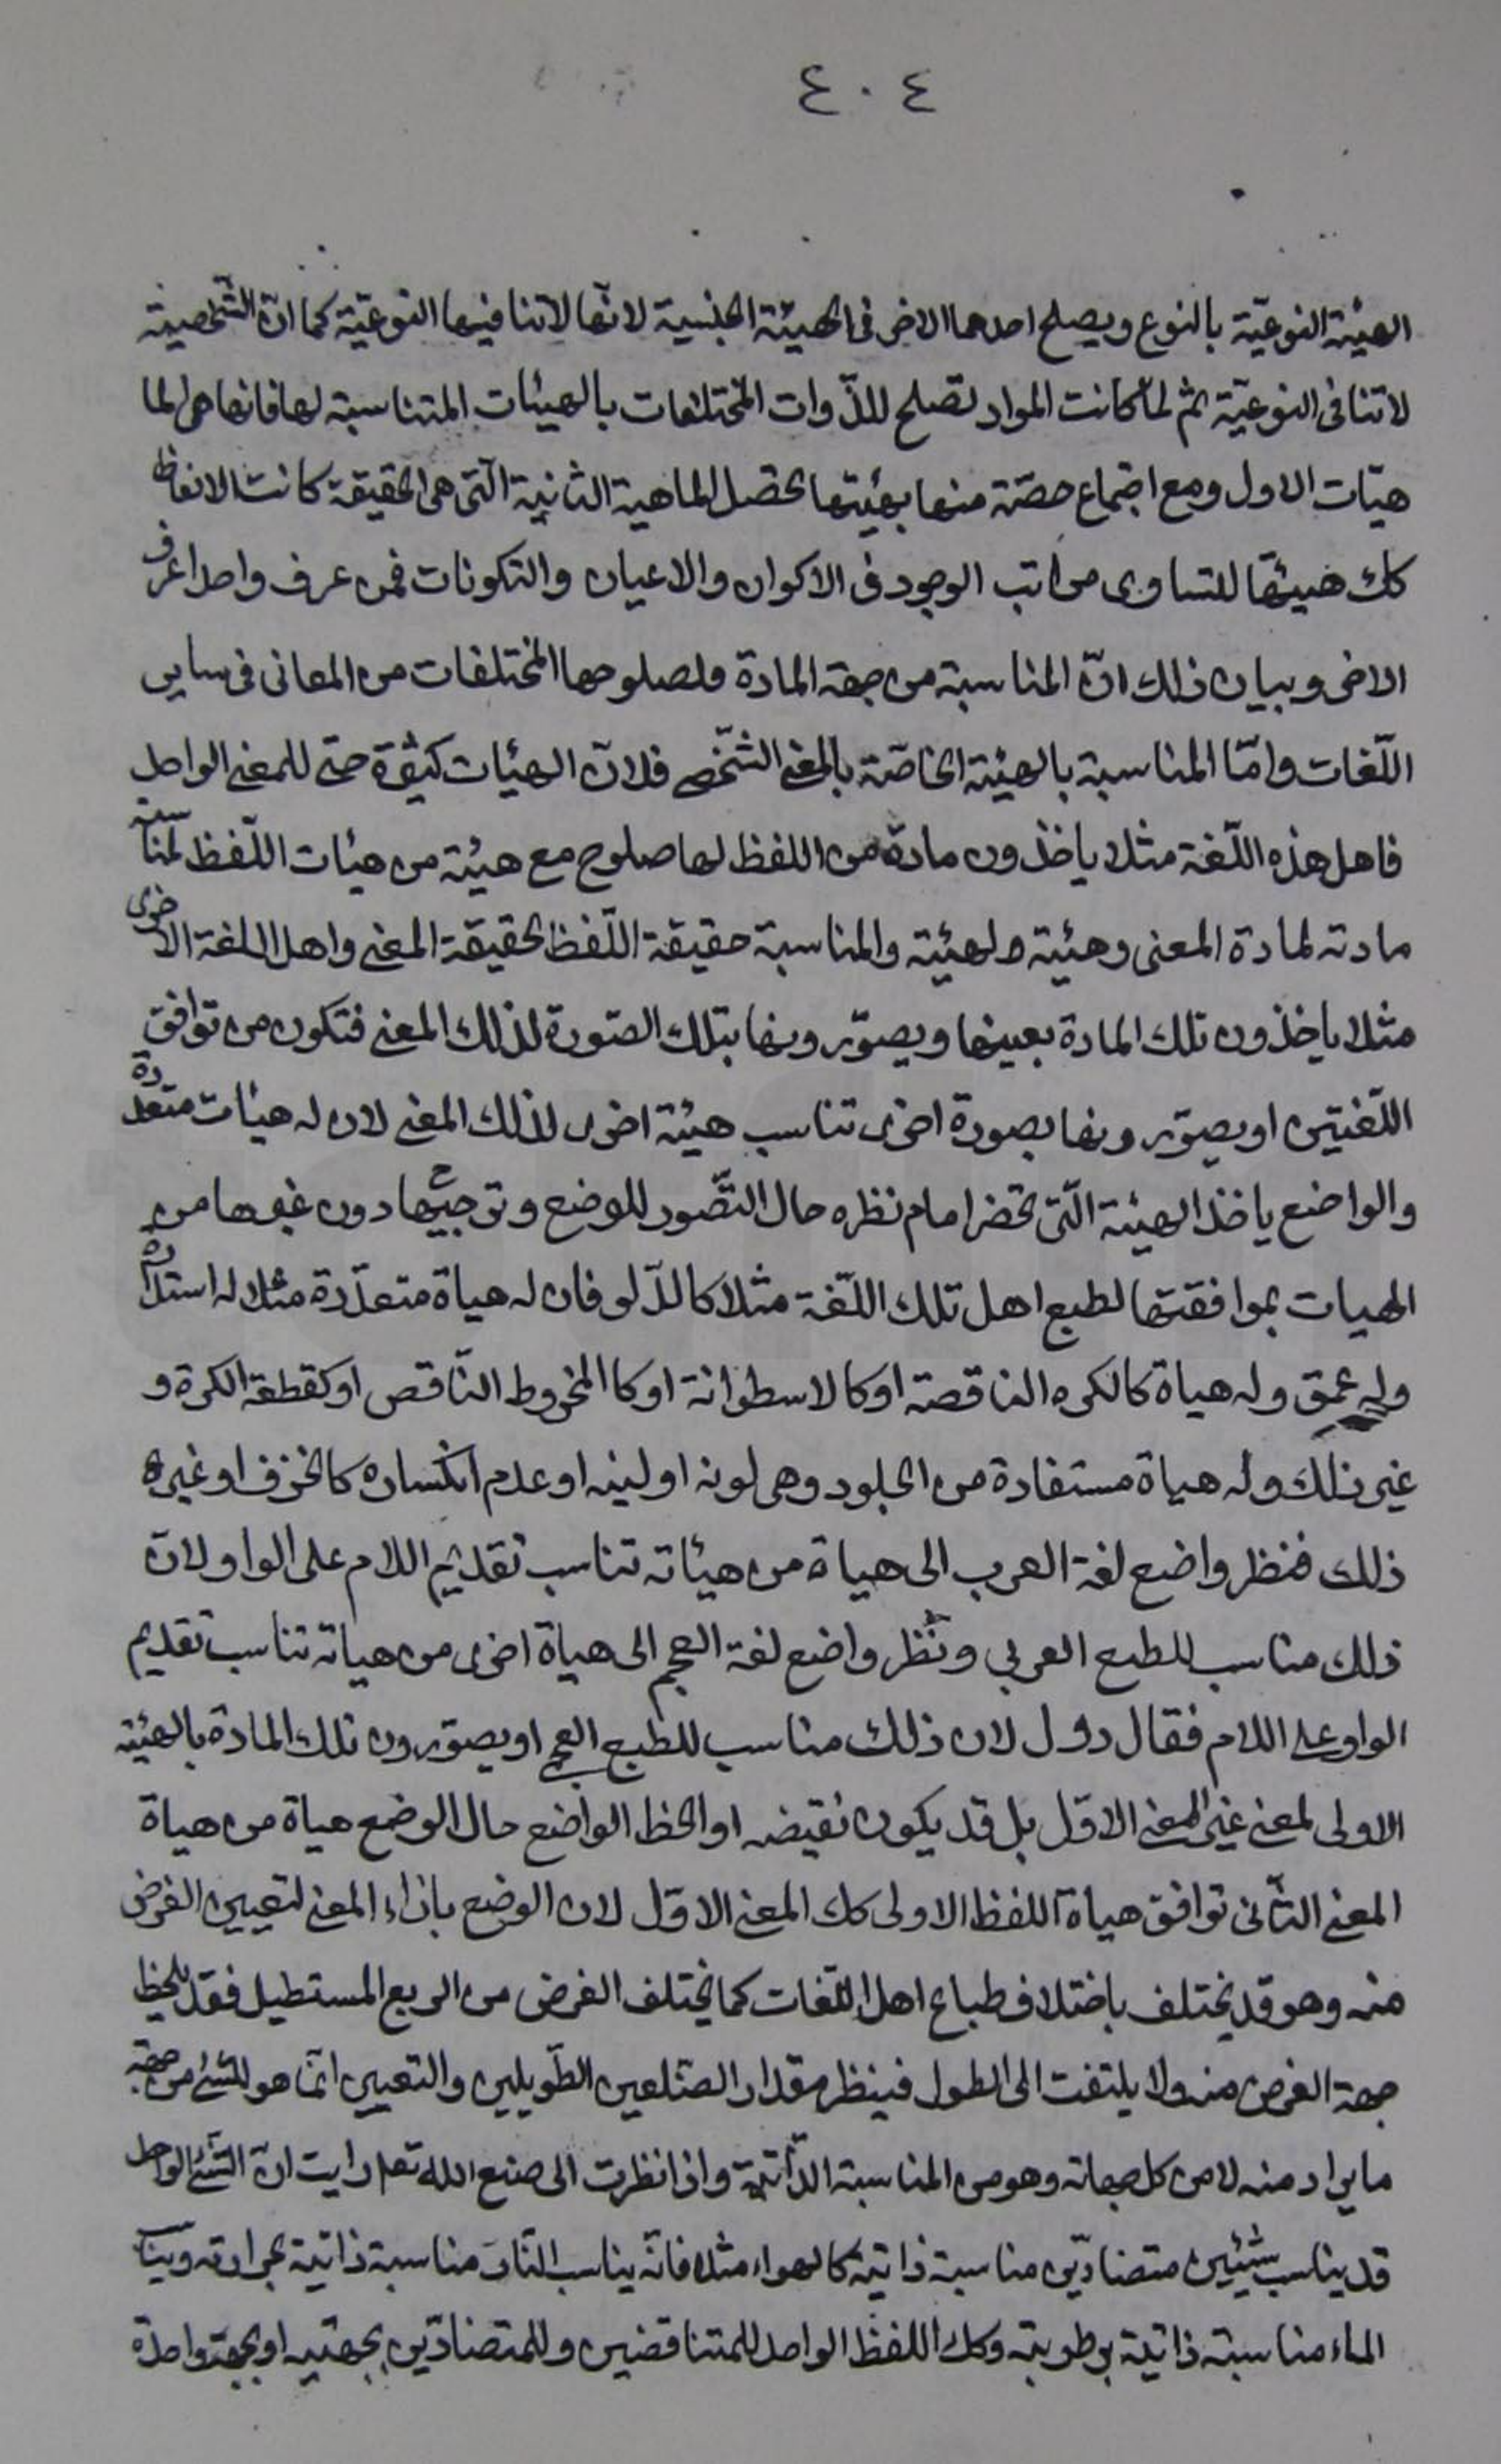 ٤٠٤
الهيئة النوعيّة بالنوع ويصلح احدهما الاخر فى الهيئة الجنسية لانّها لاتنافيها النوعيّة كما انّ الشّخصية
لاتنافى النوعيّة ثم لمّا كانت المواد تصلح للذّوات المختلفات بالهيئات المتناسبة لها فانها هى لما
هيّات الاول ومع اجتماع حصّة منها بهيئتها تحصل الماهية الثانية الّتى هى الحقيقة كانت الالفاظ
كك هيئتها للتساوى مراتب الوجود فى الاكوان والاعيان والتكونات فمن عرف واحدا عرف
الاخر وبيان ذلك انّ المناسبة من جهة المادة ولصلوحها المختلفات من المعانى فى ساير
اللّغات وامّا المناسبة بالهيئة الخاصّة بالمعنى الشّخصى فلانّ الهيئات كثيرة حتى للمعنى الواحد
فاهل هذه اللّغة مثلا ياخذون مادة من اللفظ لها صلوح مع هيئة من هيئات اللّفظ لمناسبة
مادته لمادة المعنى وهيئته لهيئته والمناسبة حقيقة اللّفظ لحقيقة المعنى واهل اللغة الاخرى
مثلا ياخذون تلك المادة بعينها ويصوّرونها بتلك الصّورة لذلك المعنى فتكون من توافق
اللّغتين او يصوّرونها بصورة اخرى تناسب هيئة اخرى لذلك المعنى لان له هيئات متعدّدة
والواضع ياخذ الهيئة الّتى تحضر امام نظره حال التّصور للوضع وترجيحها دون غيرها من
الهيات بموافقتها لطبع اهل تلك اللّغة مثلا كالدّلو فان له هياة متعدّدة مثلا له استدارة
وله عمق وله هياة كالكره الناقصة او كالاسطوانة او كالمخروط النّاقص او كقطعة الكرة و
غير ذلك وله هياة مستفادة من الجلود وهى لونه او لينه او عدم انكساره كالخزف او غيره
ذلك فنظر واضع لغة العرب الى هياة من هيئاته تناسب تقديم اللام على الواو لانّ
ذلك مناسب للطبع العربي ونظر واضع لغة العجم الى هياة اخرى من هياته تناسب تقديم
الواو على اللام فقال دول لان ذلك مناسب للطبع العجمى او يصوّرون تلك المادة بالهيئة
الاولى لمعنى غير المعنى الاوّل بل قد يكون نقيضه او الحظ الواضع حال الوضع هياة من هياة
المعنى الثّانى توافق هياة اللفظ الاولى كك المعنى الاوّل لان الوضع بازاء المعنى لتعيين الغرض
منه وهو قد يختلف باختلاف طباع اهل اللّغات كما يختلف الغرض من المربع المستطيل فقد يلحظ
جهة العرض منه ولا يلتفت الى الطول فينظر مقدار الضّلعين الطّويلين والتعيين انّما هو للشئ من جهة
ما يراد منه لا من كل جهاته وهو من المناسبة الذّاتيّة واذا نظرت الى صنع الله تعا رايت انّ الشّئ الواحد
قد يناسب شيئين متضادّين مناسبة ذاتية كالهواء مثلا فانّه يناسب النّار مناسبة ذاتية بحرارته ويناسب
الماء مناسبة ذاتيّة برطوبته وكك اللفظ الواحد للمتناقضين وللمتضادّين بجهتيه او بجهة واحدة